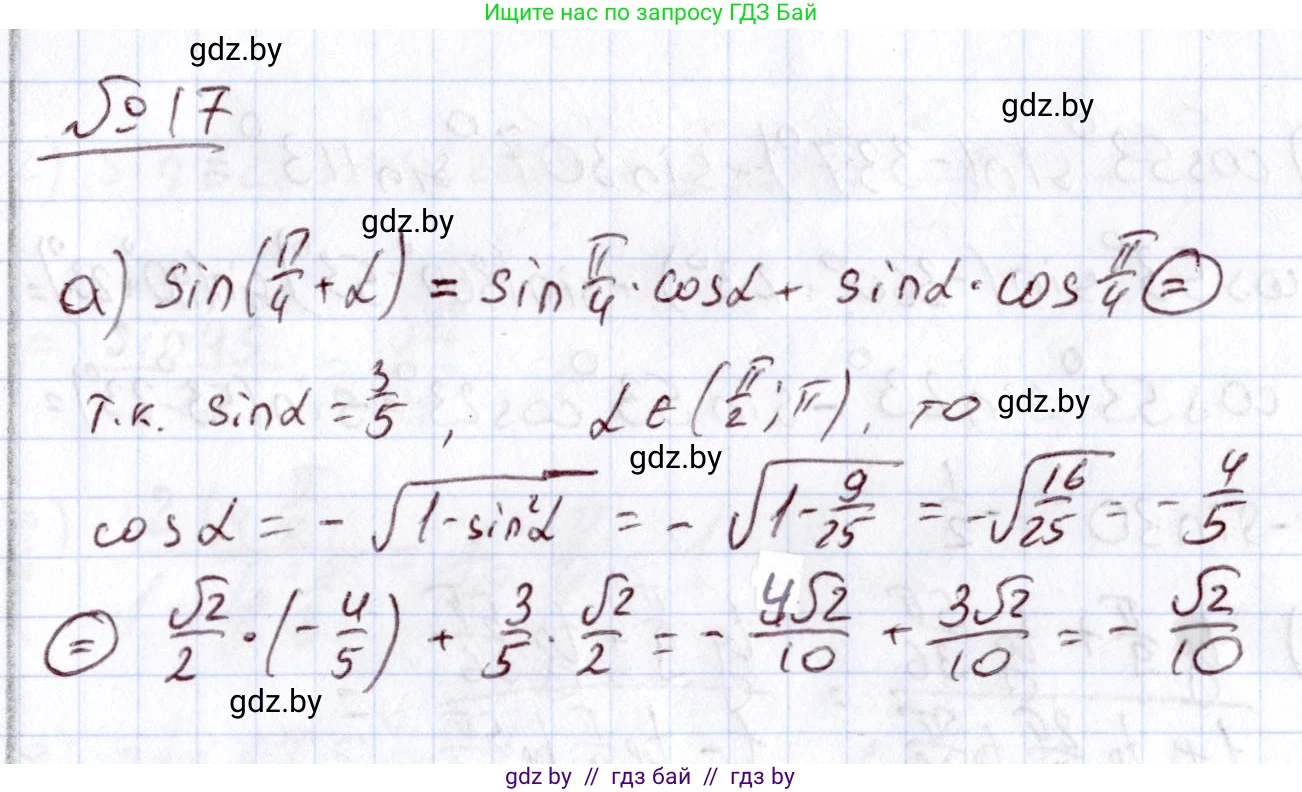 Ищите нас по запросу ГДЗ Бай
gdz.by
№ 17
gdz.by
gdz.by
а) sin(π/4 + α) = sin π/4 · cosα + sinα · cos π/4 ⊜
т.к. sinα = 3/5, α ∈ (π/2; π), то
gdz.by
gdz.by
cos α = - √(1-sin²α) = - √(1-9/25) = -√(16/25) = - 4/5
⊜ √2/2 · (- 4/5) + 3/5 · √2/2 = - 4√2/10 + 3√2/10 = - √2/10
gdz.by
gdz by // гдз бай // гдз by